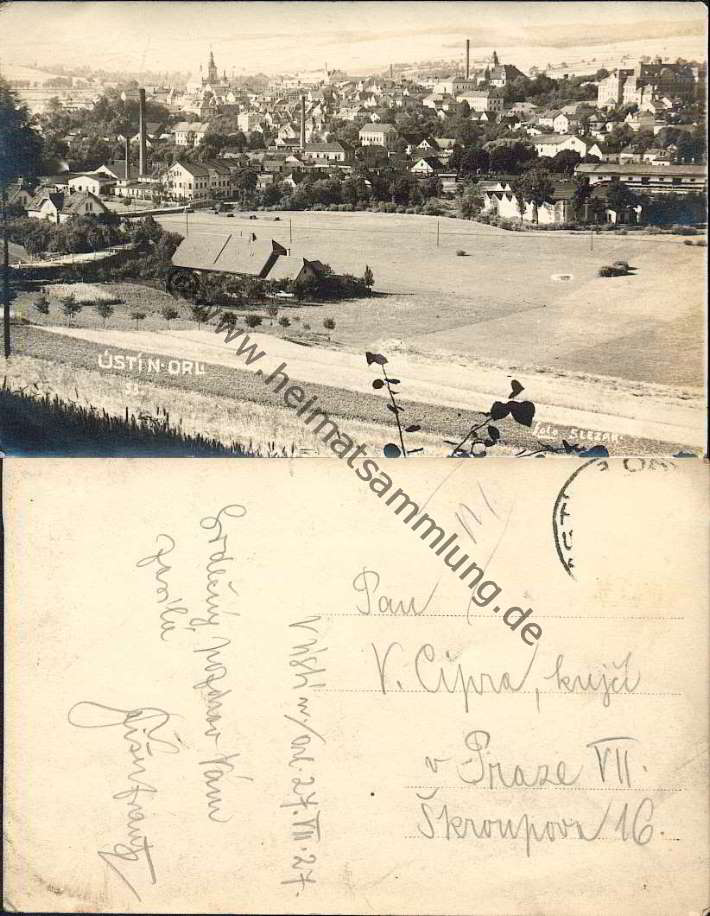 ÚSTÍ N·ORL.
foto SLEZÁK
© www.heimatsammlung.de
Srdečný pozdrav Vám
zasílá
V Ústí n/Orl. 27. VII. 27.
Pan
V. Cipra, krejčí
v Praze VII.
Škroupova 16.